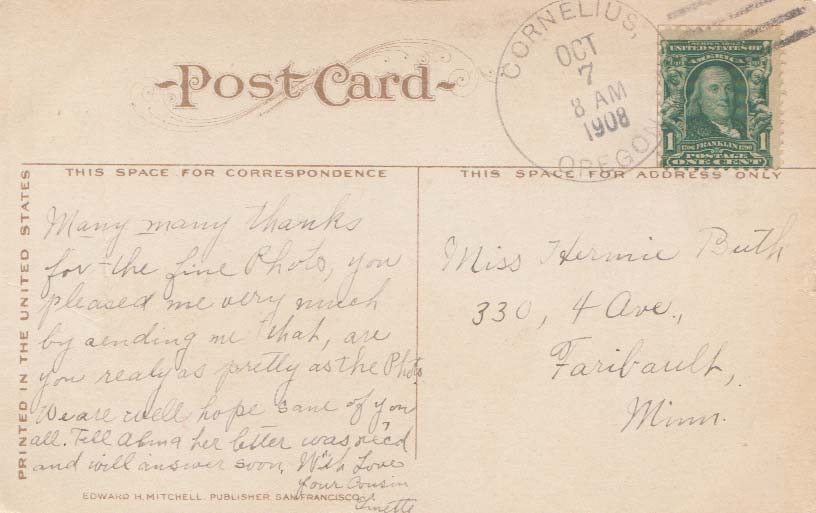 Post Card
CORNELIUS,
OCT
7
8 AM
1908
OREGON
SERIES 1902
UNITED STATES OF
AMERICA
1 1
1706 FRANKLIN 1790
POSTAGE
ONE CENT
THIS SPACE FOR CORRESPONDENCE
THIS SPACE FOR ADDRESS ONLY
PRINTED IN THE UNITED STATES
Many many thanks
for the fine Photo, you
pleased me very much
by sending me that, are
you realy as pretty as the Photo
We are well hope same of you
all. Tell Alma her letter was rec'd
and will answer soon, With Love
your Cousin
Miss Hermie Buth
330, 4 Ave.,
Faribault,
Minn.
EDWARD H. MITCHELL. PUBLISHER. SAN FRANCISCO